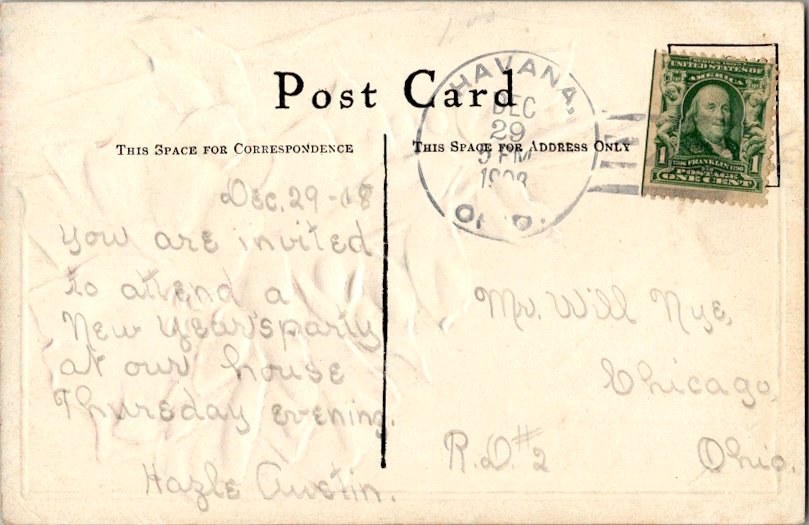 Post Card
THIS SPACE FOR CORRESPONDENCE
THIS SPACE FOR ADDRESS ONLY
HAVANA,
DEC
29
5 PM
1908
O.
UNITED STATES OF
AMERICA
1 FRANKLIN 1
POSTAGE
ONE CENT
Dec. 29 - 08
You are invited
to attend a
New Year's party
at our house
Thursday evening.
Hazle Austin.
Mr. Will Nye,
Chicago
R.D. #2 Ohio.